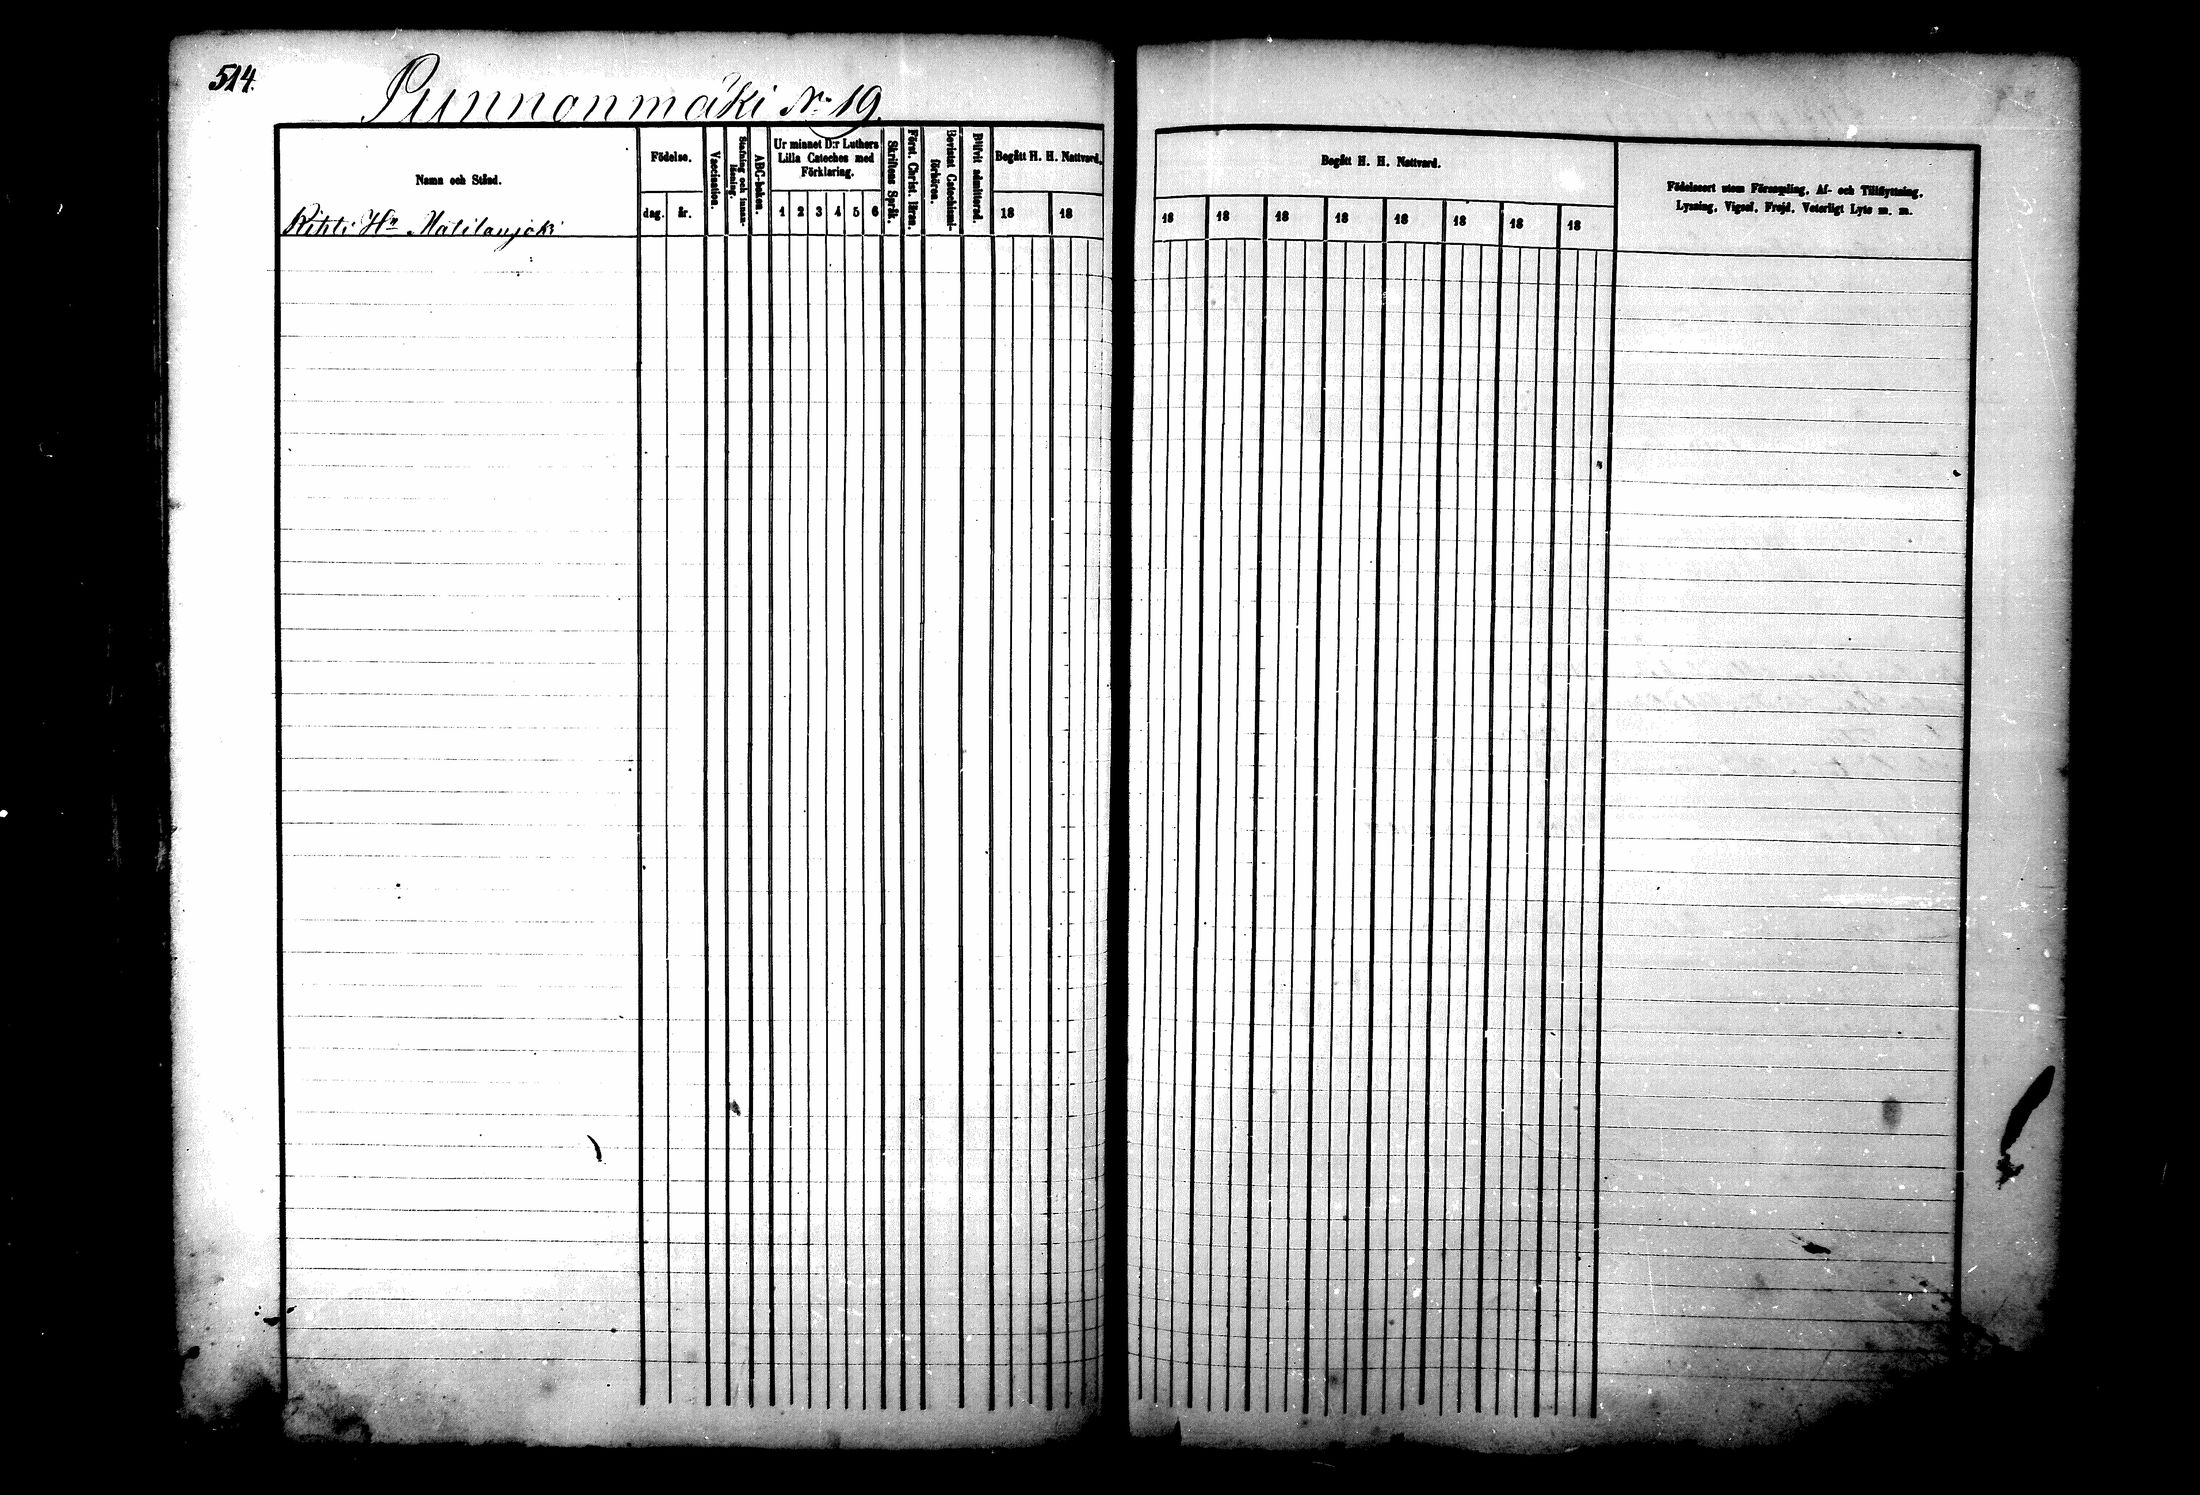 514.
Punnonmäki No 19.
Namn och Stånd.
Födelse.
dag.
år.
Vaccination.
Stafning och innanläsning.
ABC-boken.
Ur minnet D:r Luthers
Lilla Cateches med
Förklaring.
1 2 3 4 5 6
Skriftens Språk.
Först. Christ. läran.
Bevistat Catechismi-
förhören.
Blifvit admitterad.
Begått H. H. Nattvard.
18 18
Hn Matilanjoki
Begått H. H. Nattvard.
18 18 18 18 18 18 18 18
Födelseort utom Församling, Af- och Tillflyttning,
Lysning, Vigsel, Frejd, Veterligt Lyte m. m.